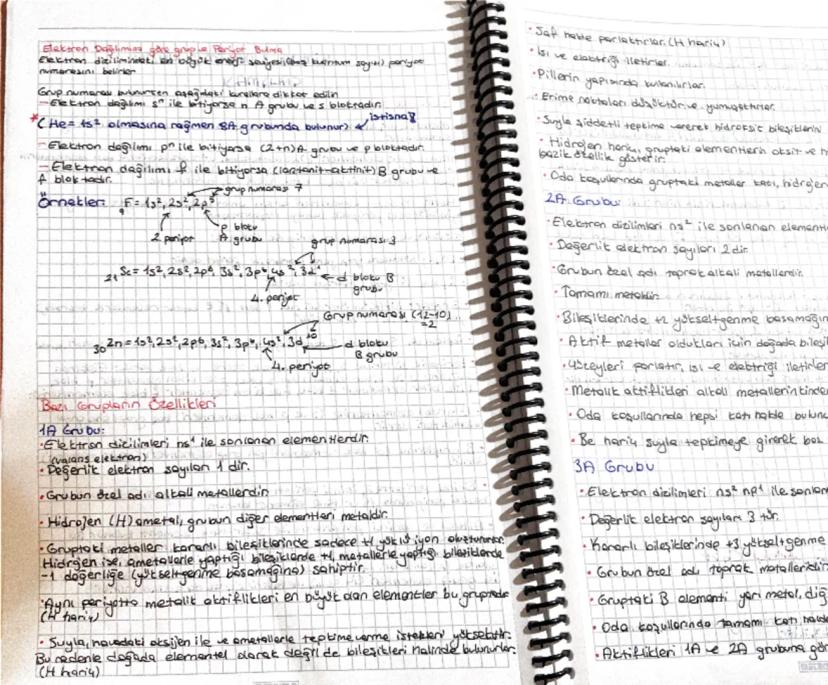 Elektron Dağılımına göre grup ve Periyot Bulma
Elektron dizilimindeki en büyük enerji seviyesi (baş kuantum sayısı) periyot
numarasını belirler
Grup numarası bulunurken aşağıdaki kurallara dikkat edilir
- Elektron dağılımı sⁿ ile bitiyorsa n A grubu ve s bloktadır.
* (He = 1s² olmasına rağmen 8A grubunda bulunur) istisna
- Elektron dağılımı pⁿ ile bitiyorsa (2+n) A grubu ve p bloktadır.
- Elektron dağılımı f ile bitiyorsa (lantanit-aktinit) B grubu ve
f bloktadır.
grup numarası 7
Örnekler: ₉F = 1s², 2s², 2p⁵
2. periyot
p bloku
A grubu
grup numarası 3
₂₁Sc = 1s², 2s², 2p⁶, 3s², 3p⁶, 4s², 3d¹
d bloku B
grubu
4. periyot
Grup numarası (12-10)
=2
₃₀Zn = 1s², 2s², 2p6, 3s², 3p⁶, 4s², 3d¹⁰
d bloku
B grubu
4. periyot
Bazı Grupların Özellikleri
1A Grubu:
• Elektron dizilimleri ns¹ ile sonlanan elementlerdir.
(valans elektron)
• Değerlik elektron sayıları 1 dir.
• Grubun özel adı alkali metallerdir
• Hidrojen (H) ametal, grubun diğer elementleri metaldir.
• Gruptaki metaller kararlı bileşiklerinde sadece +1 yüklü iyon oluştururlar.
Hidrojen ise, ametallerle yaptığı bileşiklerde +1, metallerle yaptığı bileşiklerde
-1 değerliğe (yükseltgenme basamağına) sahiptir.
• Aynı periyotta metalik aktiflikleri en büyük olan elementler bu gruptadır
(H hariç)
• Suyla, havadaki oksijen ile ve ametallerle tepkime verme istekleri yüksektir.
Bu nedenle doğada elementel olarak değil de bileşikleri halinde bulunurlar.
(H hariç)
• Saf halde parlaktırlar. (H hariç)
• Isı ve elektriği iletirler.
• Pillerin yapısında kullanılırlar.
• Erime noktaları düşüktür ve yumuşaktırlar.
• Suyla şiddetli tepkime vererek hidroksit bileşiklerini
• Hidrojen hariç, gruptaki elementlerin oksit ve h
bazik özellik gösterir.
• Oda koşullarında gruptaki metaller katı, hidrojen
2A Grubu
• Elektron dizilimleri ns² ile sonlanan elementl
• Değerlik elektron sayıları 2 dir.
• Grubun özel adı toprak alkali metallerdir.
• Tamamı metaldir.
• Bileşiklerinde +2 yükseltgenme basamağın
• Aktif metaller oldukları için doğada bileşi
• Yüzeyleri parlaktır, ısı ve elektriği iletirler
• Metalik aktiflikleri alkali metallerinkinden
• Oda koşullarında hepsi katı halde bulunu
• Be hariç suyla tepkimeye girerek baz
3A Grubu
• Elektron dizilimleri ns² np¹ ile sonlan
• Değerlik elektron sayıları 3 tür.
• Kararlı bileşiklerinde +3 yükseltgenme
• Grubun özel adı toprak metalleridir.
• Gruptaki B elementi yarı metal, diğ
• Oda koşullarında tamamı katı halde
• Aktiflikleri 1A ve 2A grubuna gör